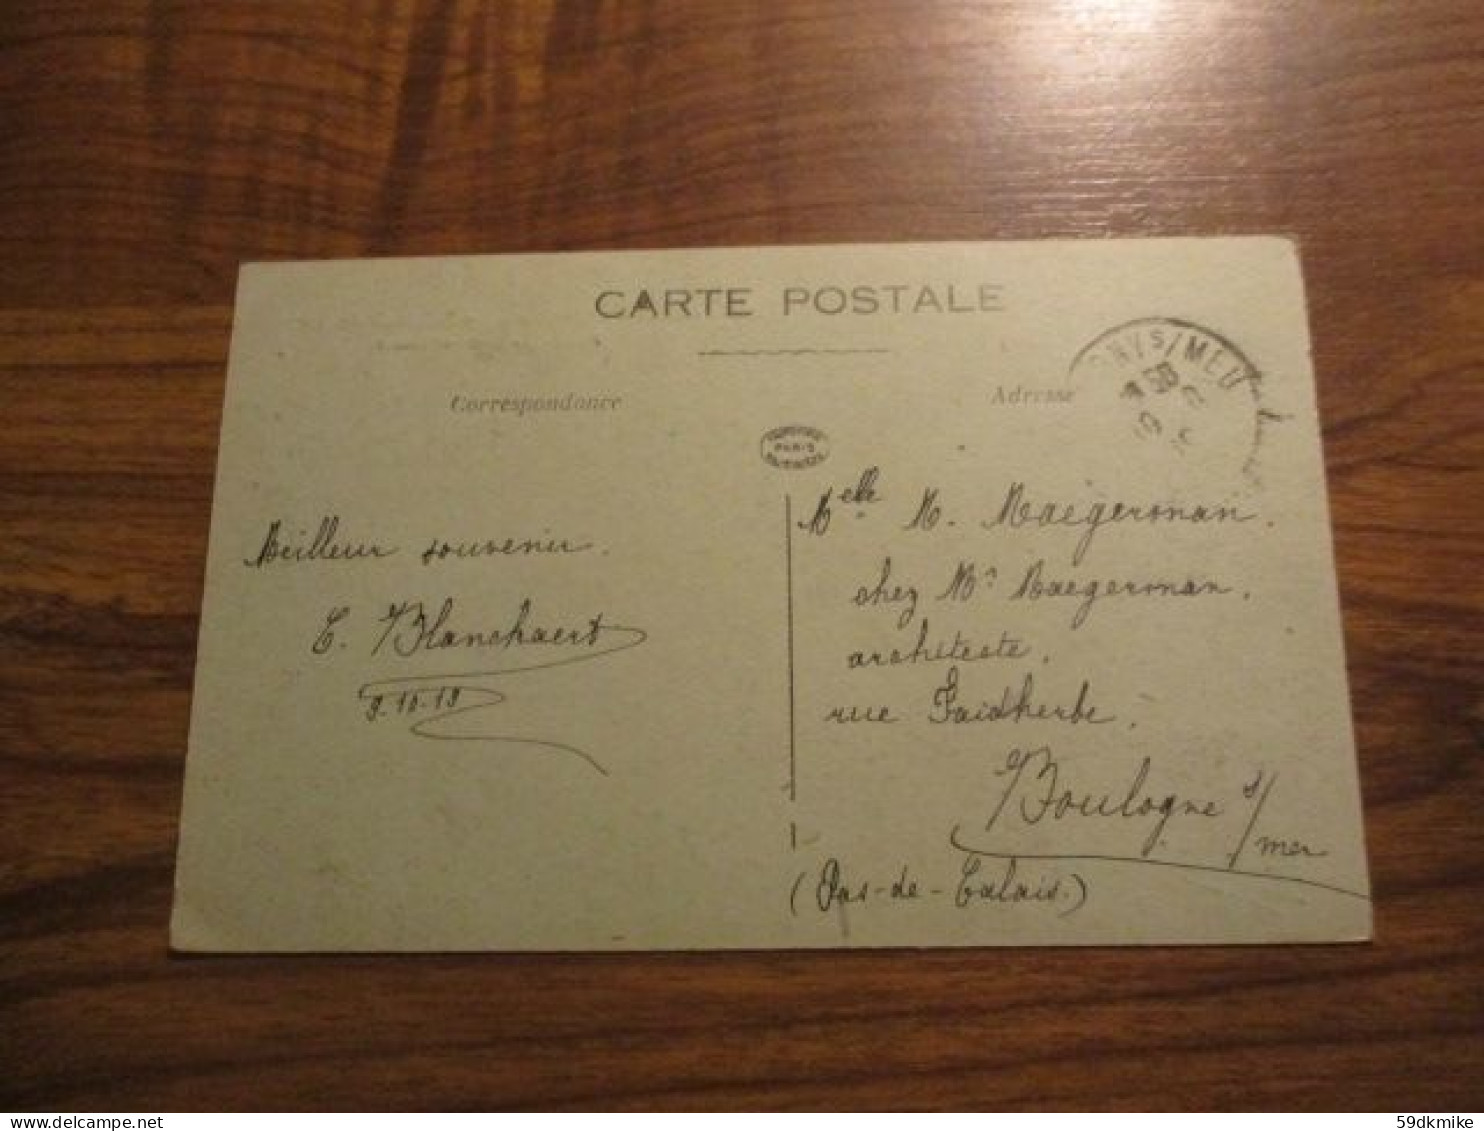 CARTE POSTALE
Correspondance
Adresse
PARIS
Meilleur souvenir.
E. Blanchaert
9.10.19
Melle M. Maegerman.
chez Mr Maegerman,
architecte,
rue Faidherbe,
Boulogne s/mer
(Pas-de-Calais.)
59dkmike